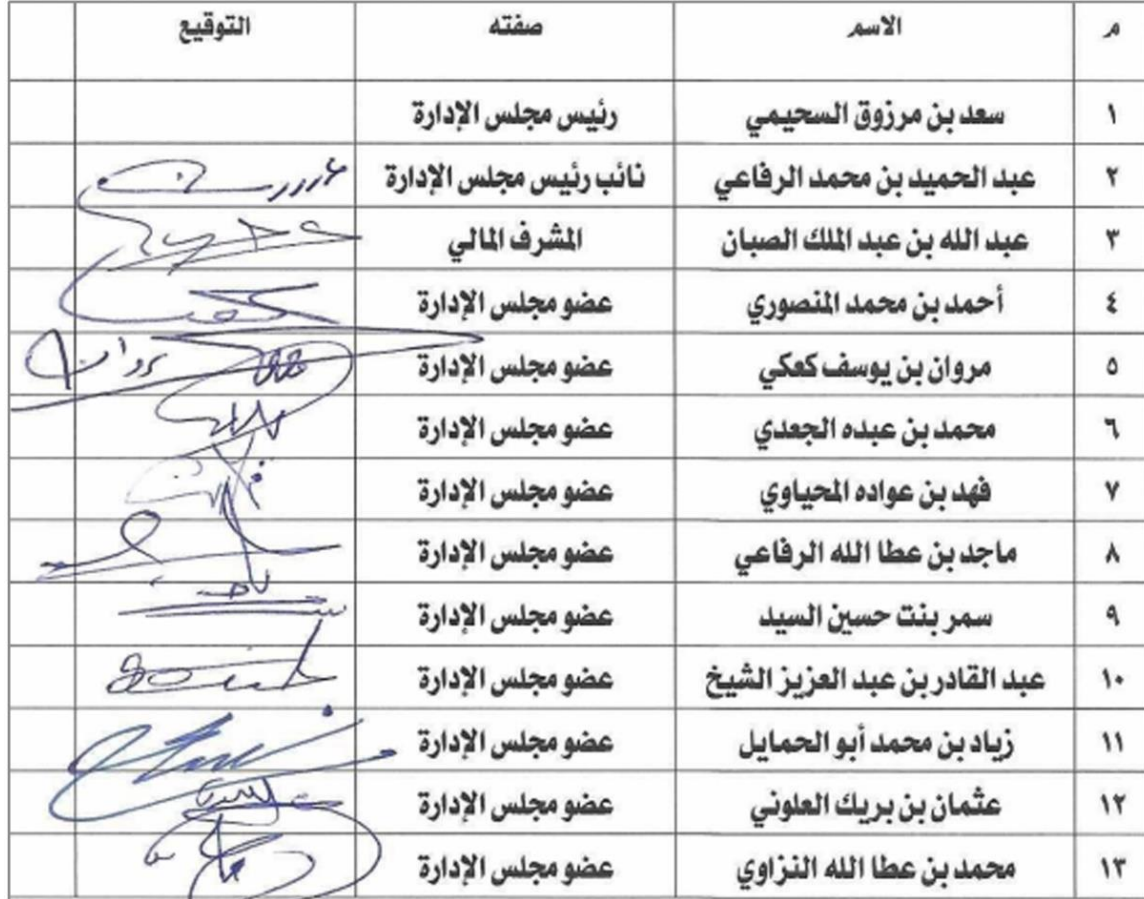 م الاسم صفته التوقيع
١ سعد بن مرزوق السحيمي رئيس مجلس الإدارة
٢ عبد الحميد بن محمد الرفاعي نائب رئيس مجلس الإدارة
٣ عبد الله بن عبد الملك الصبان المشرف المالي
٤ أحمد بن محمد المنصوري عضو مجلس الإدارة
٥ مروان بن يوسف كعكي عضو مجلس الإدارة
٦ محمد بن عبده الجعدي عضو مجلس الإدارة
٧ فهد بن عواده المحياوي عضو مجلس الإدارة
٨ ماجد بن عطا الله الرفاعي عضو مجلس الإدارة
٩ سمر بنت حسين السيد عضو مجلس الإدارة
١٠ عبد القادر بن عبد العزيز الشيخ عضو مجلس الإدارة
١١ زياد بن محمد أبو الحمايل عضو مجلس الإدارة
١٢ عثمان بن بريك العلوني عضو مجلس الإدارة
١٣ محمد بن عطا الله النزاوي عضو مجلس الإدارة